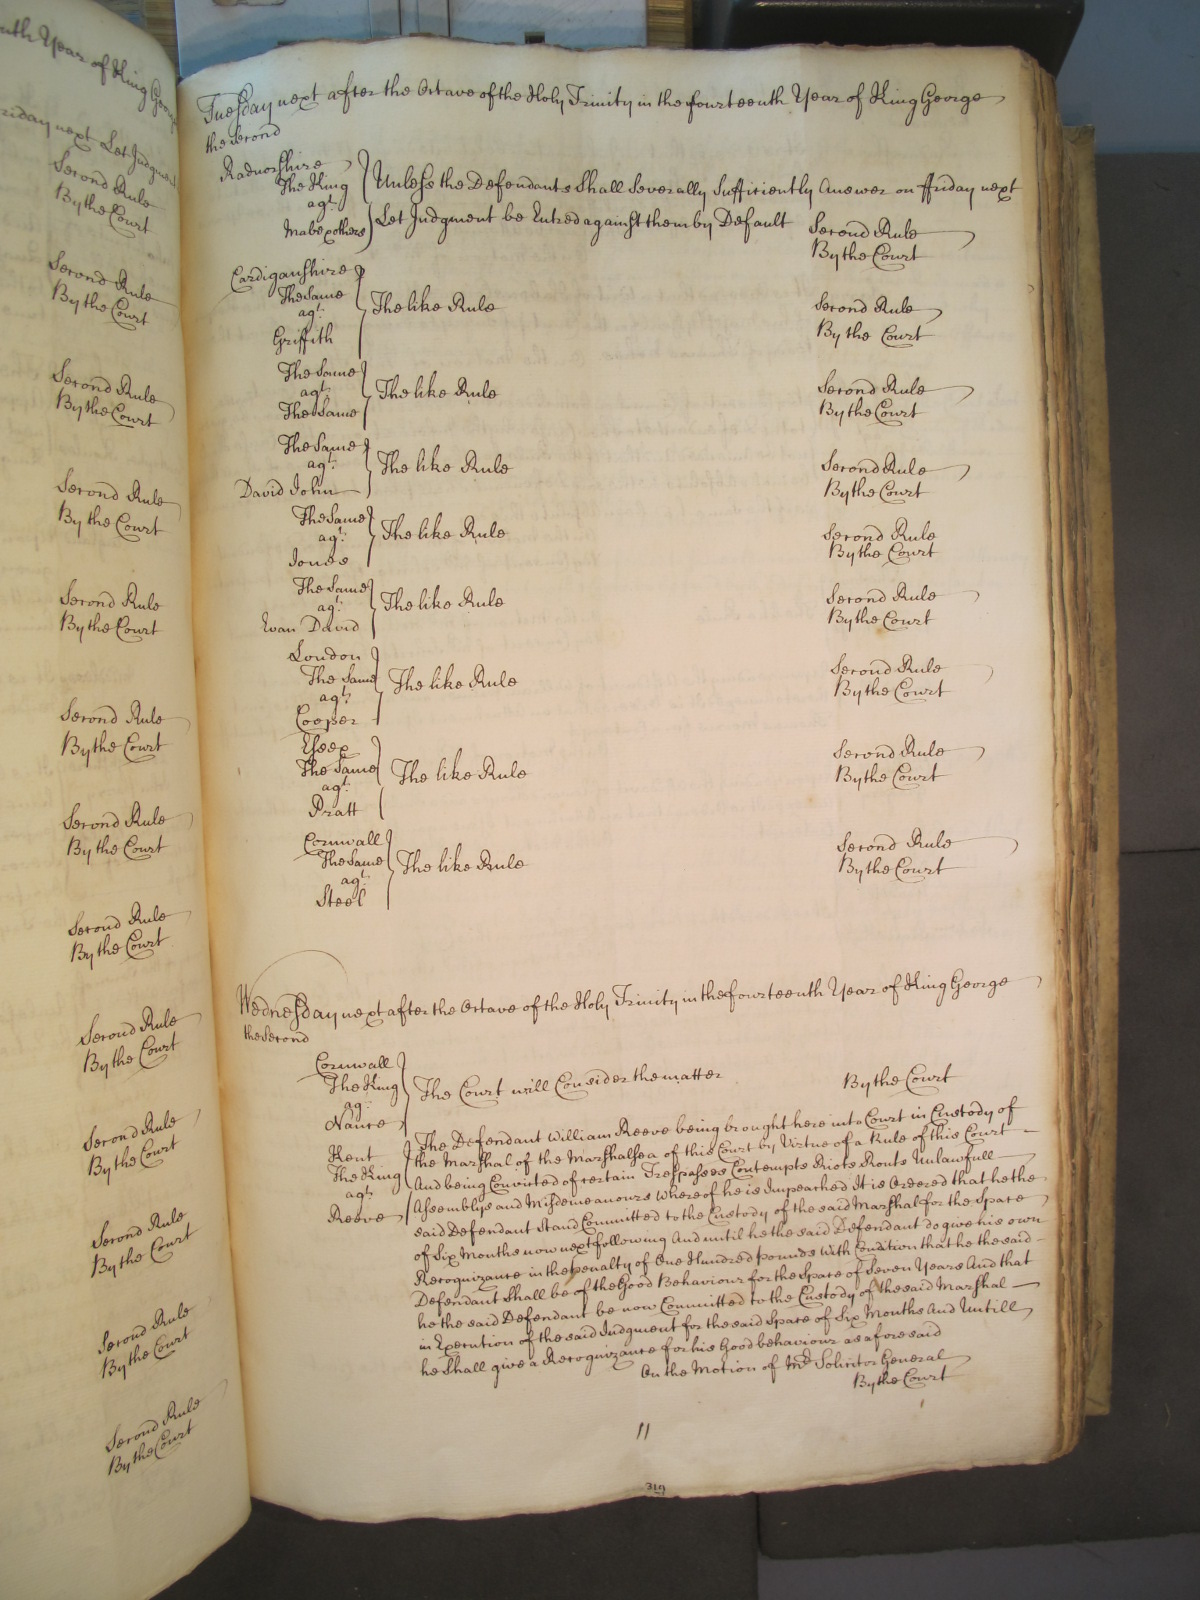 nth Year of King Georg
riday next Let Judgment
Second Rule
By the Court
Second Rule
By the Court
Second Rule
By the Court
Second Rule
By the Court
Second Rule
By the Court
Second Rule
By the Court
Second Rule
By the Court
Second Rule
By the Court
Second Rule
By the Court
Second Rule
By the Court
Second Rule
By the Court
Second Rule
By the Court
Second Rule
By the Court
Tuesday next after the Octave of the Holy Trinity in the fourteenth Year of King George
the second
Radnorshire
The King
agt.
Mabe & others
Unless the Defendants Shall Severally Sufficiently Answer on ffriday next
Let Judgment be Entred against them by Default
Second Rule
By the Court
Cardiganshire
The Same
agt.
Griffith
The like Rule
Second Rule
By the Court
The Same
agt.
The Same
The like Rule
Second Rule
By the Court
The Same
agt.
David John
The like Rule
Second Rule
By the Court
The Same
agt.
Jones
The like Rule
Second Rule
By the Court
The Same
agt.
Evan David
The like Rule
Second Rule
By the Court
London
The Same
agt.
Cooper
The like Rule
Second Rule
By the Court
Essex
The Same
agt.
Pratt
The like Rule
Second Rule
By the Court
Cornwall
The Same
agt.
Steel
The like Rule
Second Rule
By the Court
Wednesday next after the Octave of the Holy Trinity in the fourteenth Year of King George
the Second
Cornwall
The King
agt.
Nance
The Court will Consider the matter
By the Court
Kent
The King
agt.
Reeve
The Defendant William Reeve being brought here into Court in Custody of
the Marshal of the Marshalsea of this Court by Virtue of a Rule of this Court
And being Convicted of certain Trespasses Contempts Riots Routs Unlawfull
Assemblys and Misdemeanours whereof he is Impeached It is Ordered that he the
said Defendant Stand Committed to the Custody of the said Marshal for the Space
of Six Months now next following And until he the said Defendant do give his own
Recognizance in the penalty of One Hundred pounds With Condition that he the said
Defendant Shall be of the Good Behaviour for the Space of Seven Years And that
he the said Defendant be now Committed to the Custody of the said Marshal
in Execution of the said Judgment for the said Space of Six Months And Untill
he Shall give a Recognizance for his Good behaviour as aforesaid
On the Motion of Mr. Solicitor General
By the Court
319